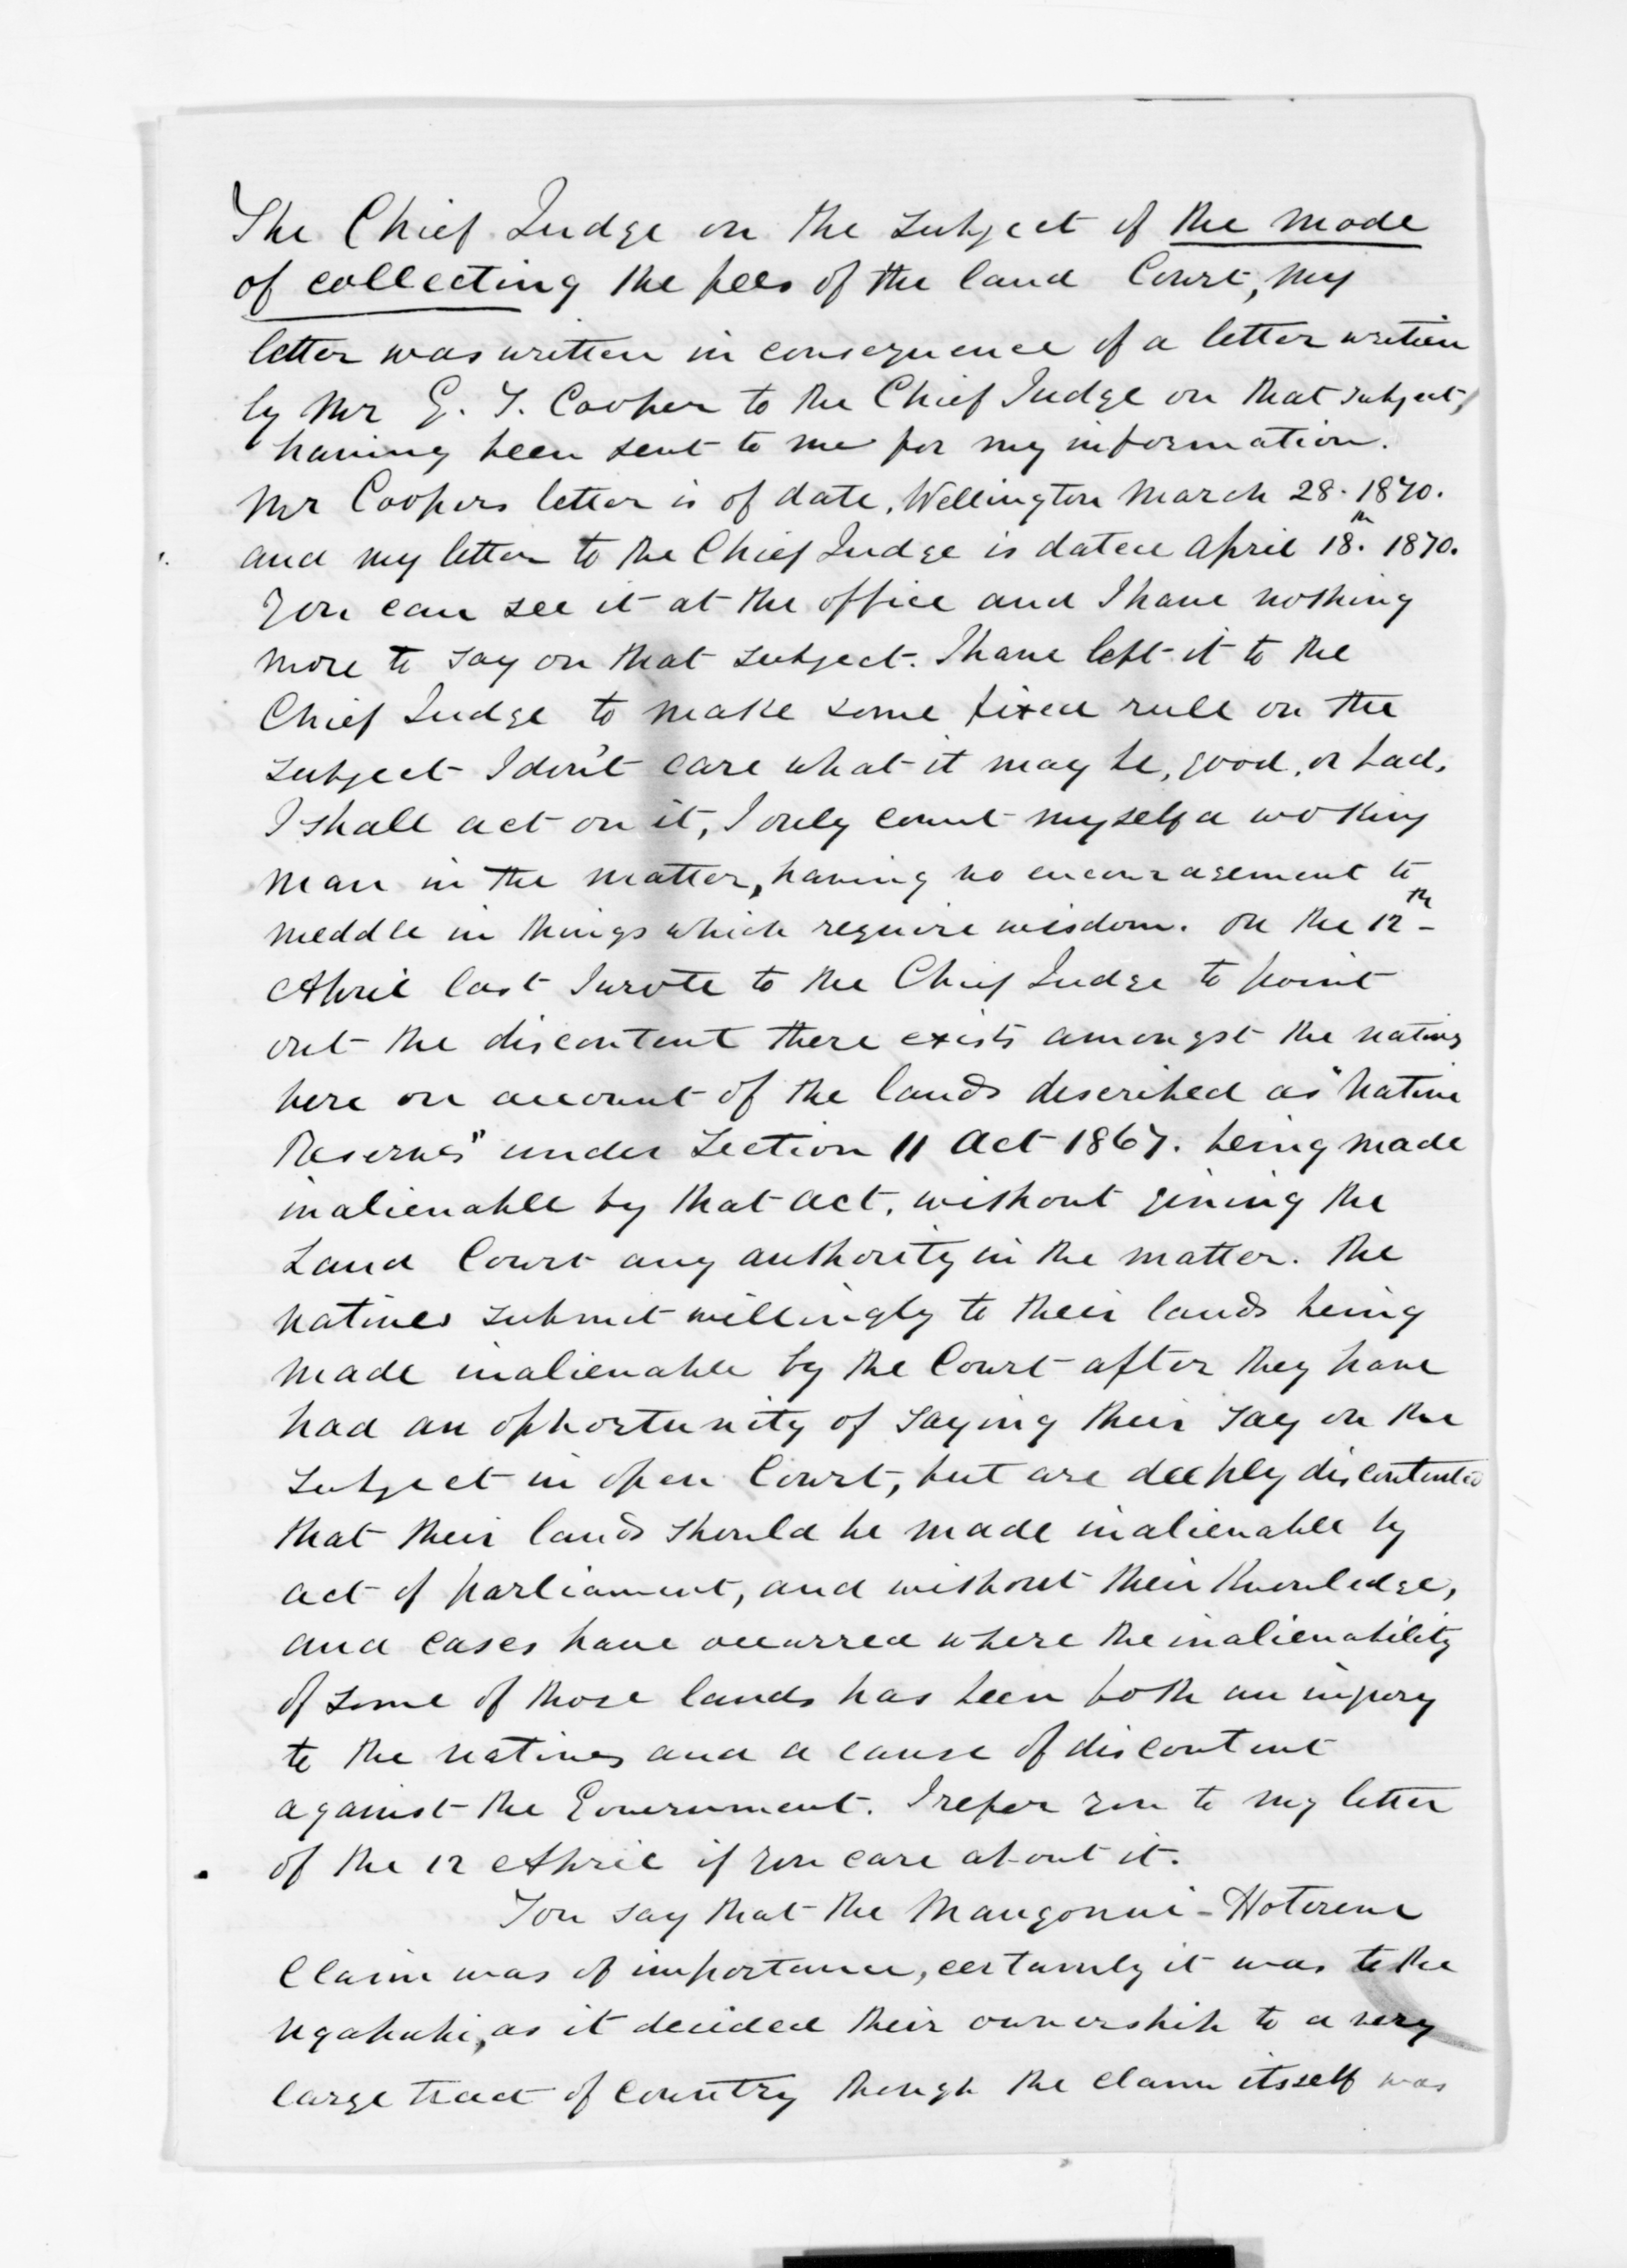 The Chief Judge on the subject of the mode
of collecting the fees of the land Court, my
letter was written in consequence of a letter written
by Mr G. S. Cooper to the Chief Judge on that subject,
having been sent to me for my information.
Mr Coopers letter is of date, Wellington March 28. 1870.
and my letter to the Chief Judge is dated April 18th. 1870.
You can see it at the office and I have nothing
more to say on that subject. I have left it to the
Chief Judge to make some fixed rule on the
subject I don't care what it may be, good, or bad,
I shall act on it, I only count myself a working
man in the matter, having no encouragement to
meddle in things which require wisdom. On the 12th
April last I wrote to the Chief Judge to point
out the discontent there exists amongst the natives
here on account of the lands described as "Native
Reserves" under Section 11 Act 1867. being made
inalienable by that act, without giving the
Land Court any authority in the matter. The
natives submit willingly to their lands being
made inalienable by the Court after they have
had an opportunity of saying their say on the
subject in open Court, but are deeply discontented
that their lands should be made inalienable by
act of parliament, and without their knowledge,
and cases have occurred where the inalienability
of some of those lands has been both an injury
to the natives and a cause of discontent
against the Government. I refer you to my letter
of the 12 April if you care about it.
You say that the Mangonui - Hotorene
Claim was of importance, certainly it was to the
Ngapuhi, as it decided their ownership to a very
large tract of country though the claim itself was